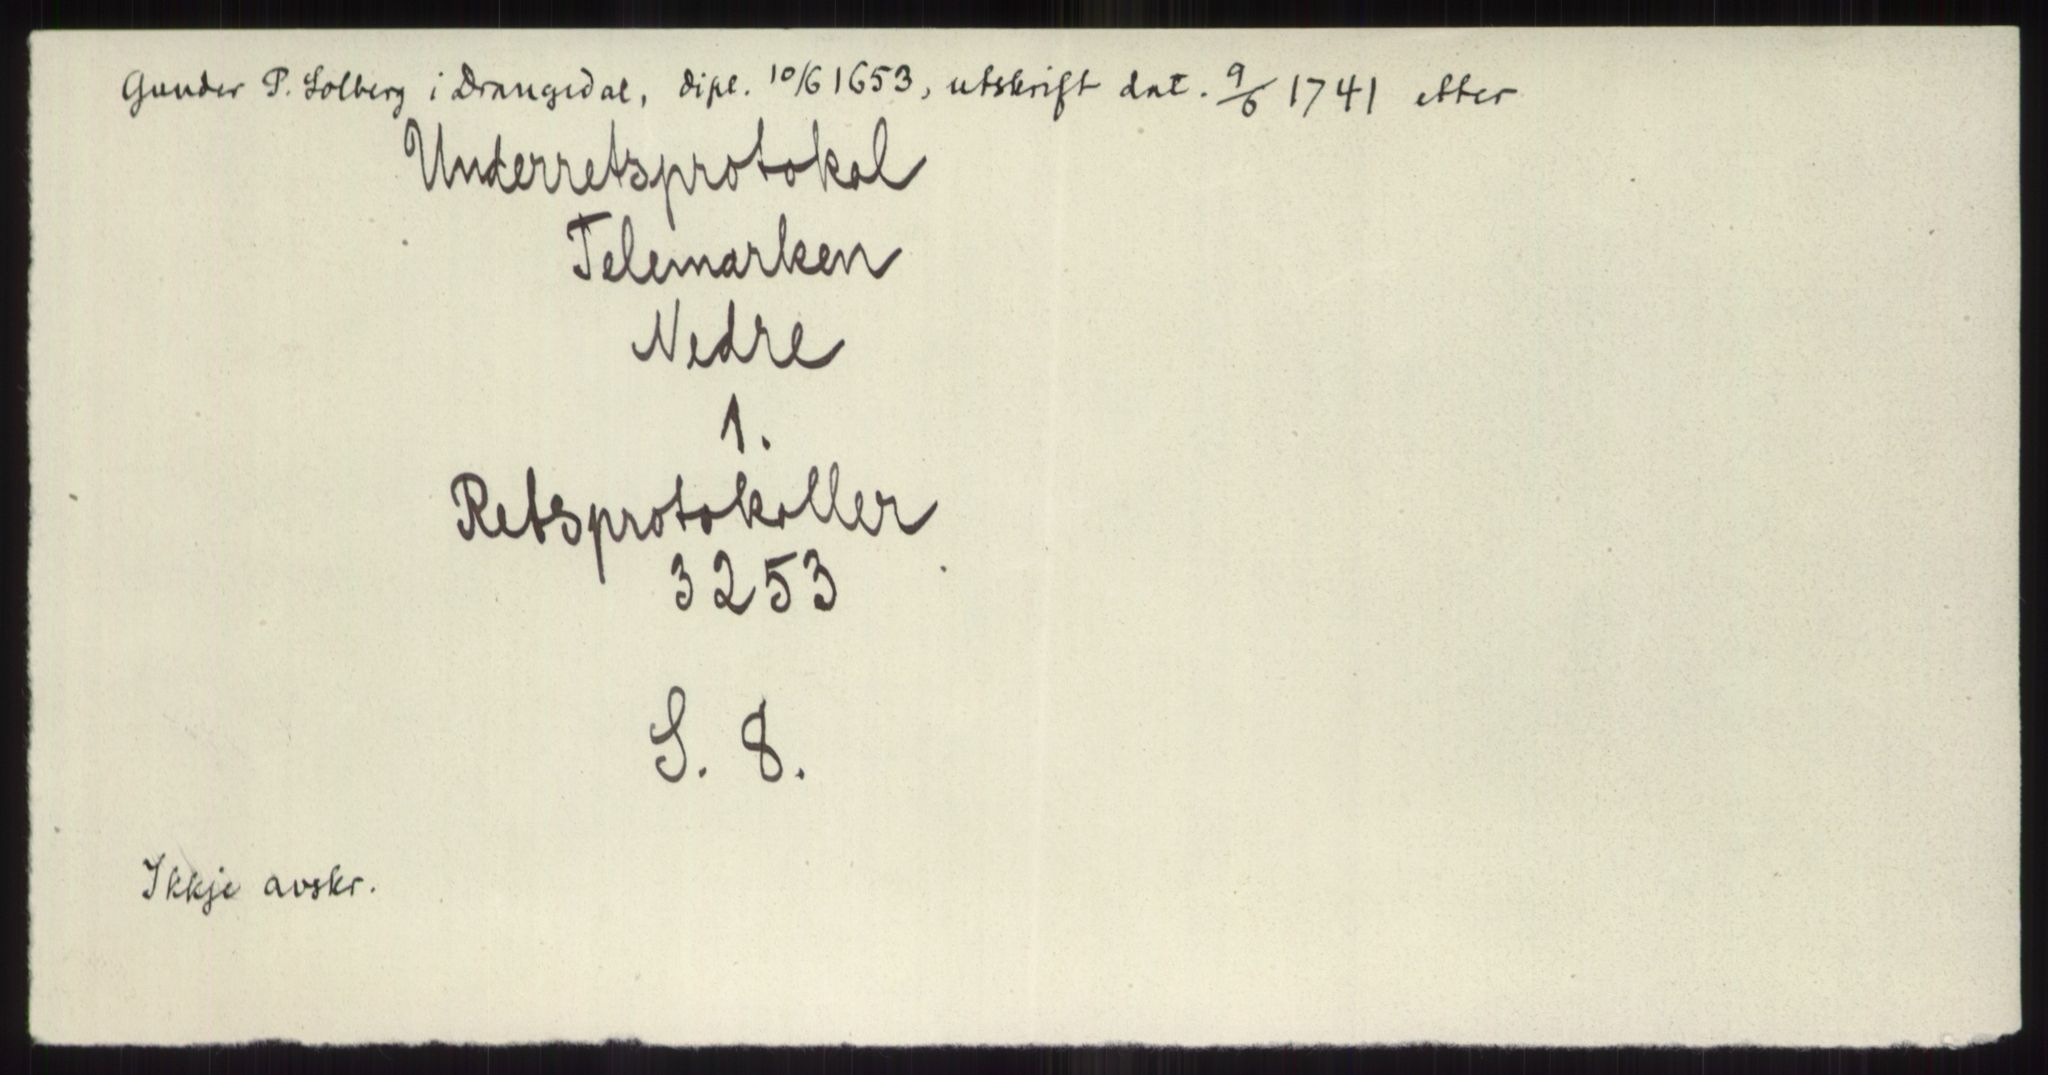 Gunder P. Solberg i Drangedal, dipl. 10/6 1653, utskrift dat. 9/6 1741 etter
Underretsprotokol
Telemarken
Nedre
1.
Retsprotokoller
3253
S. 8.
Ikkje avskr.